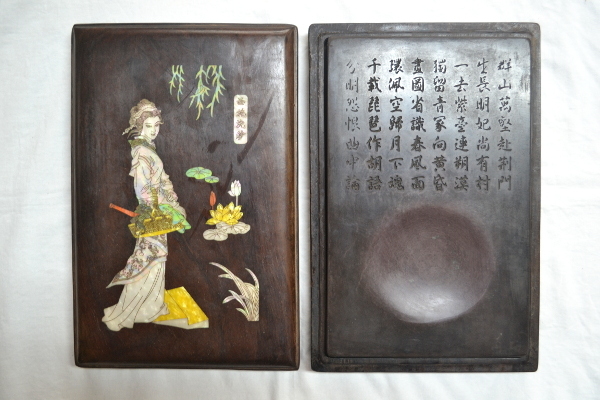 西施浣紗
群山萬壑赴荊門
生長明妃尚有村
一去紫臺連朔漠
獨留青冢向黃昏
畫圖省識春風面
環佩空歸月下魂
千載琵琶作胡語
分明怨恨曲中論